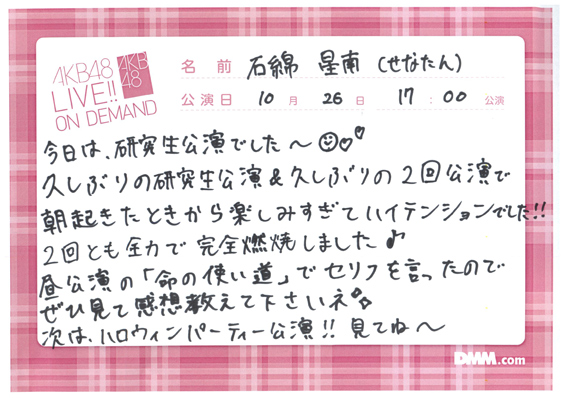 AKB48
LIVE!!
ON DEMAND
AKB
48
名前 石綿 星南 (せなたん)
公演日 10月 26日 17:00 公演
今日は、研究生公演でした〜☺♡♡
久しぶりの研究生公演&久しぶりの2回公演で
朝起きたときから楽しみすぎてハイテンションでした!!
2回とも全力で完全燃焼しました♪
昼公演の「命の使い道」でセリフを言ったので
ぜひ見て感想教えて下さいネ
次は、ハロウィンパーティー公演!! 見てね〜
DMM.com